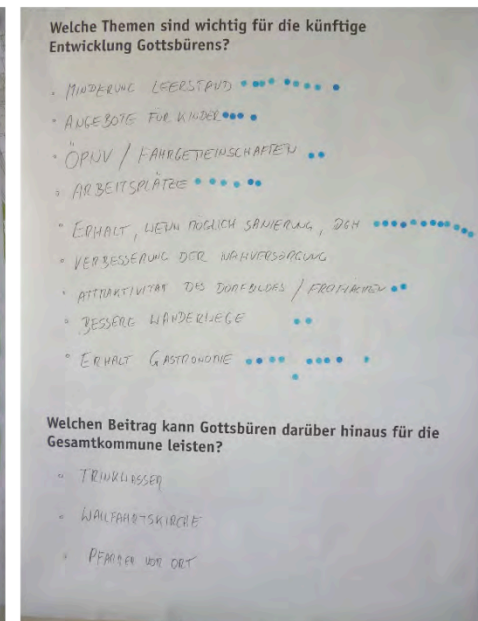 Welche Themen sind wichtig für die künftige
Entwicklung Gottsbürens?
MINDERUNG LEERSTAND
ANGEBOTE FÜR KINDER
ÖPNV / FAHRGEMEINSCHAFTEN
ARBEITSPLÄTZE
ERHALT, WENN MÖGLICH SANIERUNG, DGH
VERBESSERUNG DER NAHVERSORGUNG
ATTRAKTIVITÄT DES DORFBILDES /
BESSERE WANDERWEGE
ERHALT GASTRONOMIE
Welchen Beitrag kann Gottsbüren darüber hinaus für die
Gesamtkommune leisten?
TRINKWASSER
WALLFAHRTSKIRCHE
PFARRER VOR ORT